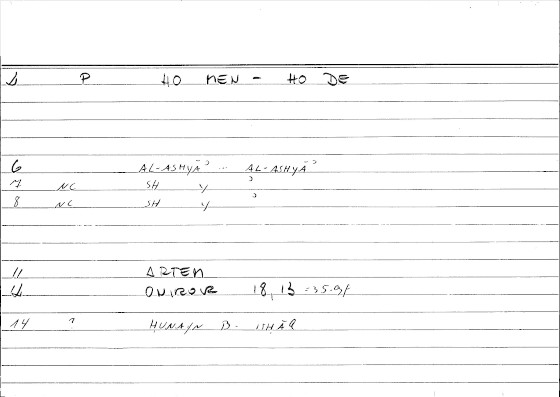 P HO MEN - HO DE
6 AL-ASHYĀʾ -- AL-ASHYĀʾ
7 NC SH Y ʾ
8 NC SH Y ʾ
11 ARTEM
ONIROCR 18, 13 = 35.9f
14 ? HUNAYN B. ISHĀQ